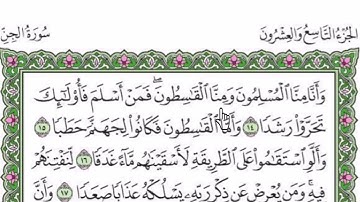 الجزء التاسع والعشرون
سورة الجن
وَأَنَّا مِنَّا الْمُسْلِمُونَ وَمِنَّا الْقَاسِطُونَ ۖ فَمَنْ أَسْلَمَ فَأُولَٰئِكَ
تَحَرَّوْا رَشَدًا ١٤ وَأَمَّا الْقَاسِطُونَ فَكَانُوا لِجَهَنَّمَ حَطَبًا ١٥
وَأَلَّوِ اسْتَقَامُوا عَلَى الطَّرِيقَةِ لَأَسْقَيْنَاهُم مَّاءً غَدَقًا ١٦ لِّنَفْتِنَهُمْ
فِيهِ ۚ وَمَن يُعْرِضْ عَن ذِكْرِ رَبِّهِ يَسْلُكْهُ عَذَابًا صَعَدًا ١٧ وَأَنَّ